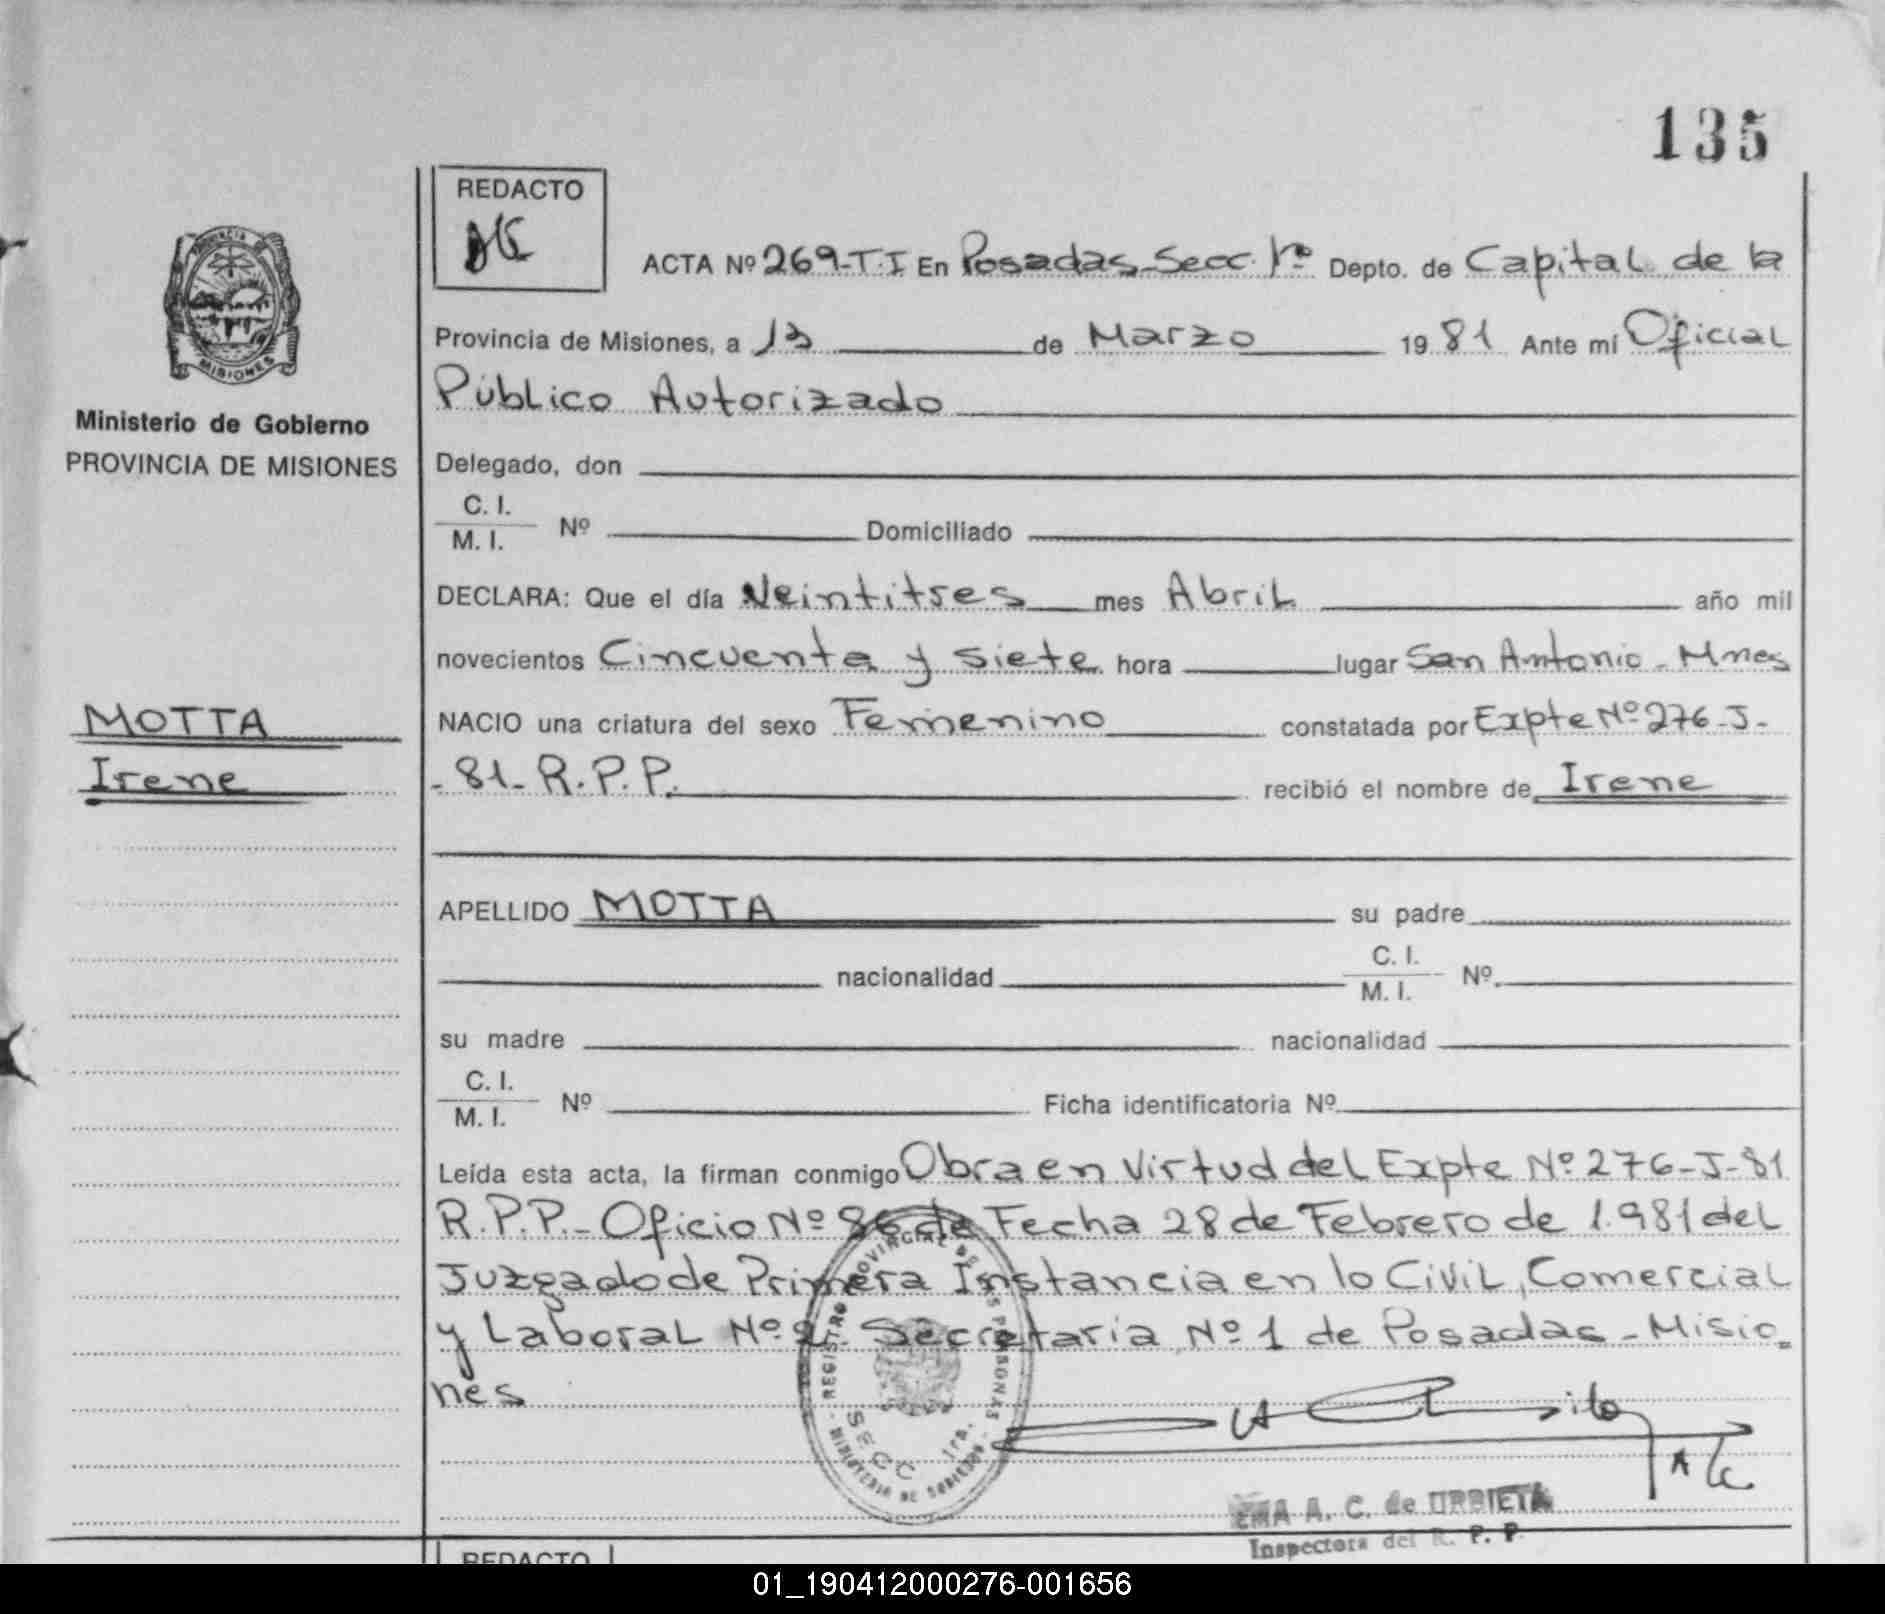 135
REDACTO
PROVINCIA DE
MISIONES
ACTA Nº 269-T.I En Posadas-Secc. 1ra Depto. de Capital de la
Provincia de Misiones, a 13 de Marzo 1981 Ante mí Oficial
Público Autorizado
Ministerio de Gobierno
PROVINCIA DE MISIONES
Delegado, don
C. I.
M. I. Nº Domiciliado
DECLARA: Que el día Veintitres mes Abril año mil
novecientos Cincuenta y siete hora lugar San Antonio - Mnes
MOTTA
Irene
NACIO una criatura del sexo Femenino constatada por Expte Nº 276-J-
-81-R.P.P. recibió el nombre de Irene
APELLIDO MOTTA su padre
nacionalidad C. I.
M. I. Nº
su madre nacionalidad
C. I.
M. I. Nº Ficha identificatoria Nº
Leída esta acta, la firman conmigo Obra en Virtud del Expte Nº 276-J-81
R.P.P.- Oficio Nº 86 de Fecha 28 de Febrero de 1.981 del
Juzgado de Primera Instancia en lo Civil, Comercial
y Laboral Nº 2, Secretaria Nº 1 de Posadas - Misio_
nes
REGISTRO PROVINCIAL DE LAS PERSONAS
SECC 1ra.
MINISTERIO DE GOBIERNO
EMA A. C. de URBIETA
Inspectora del R. P. P.
REDACTO
01_190412000276-001656